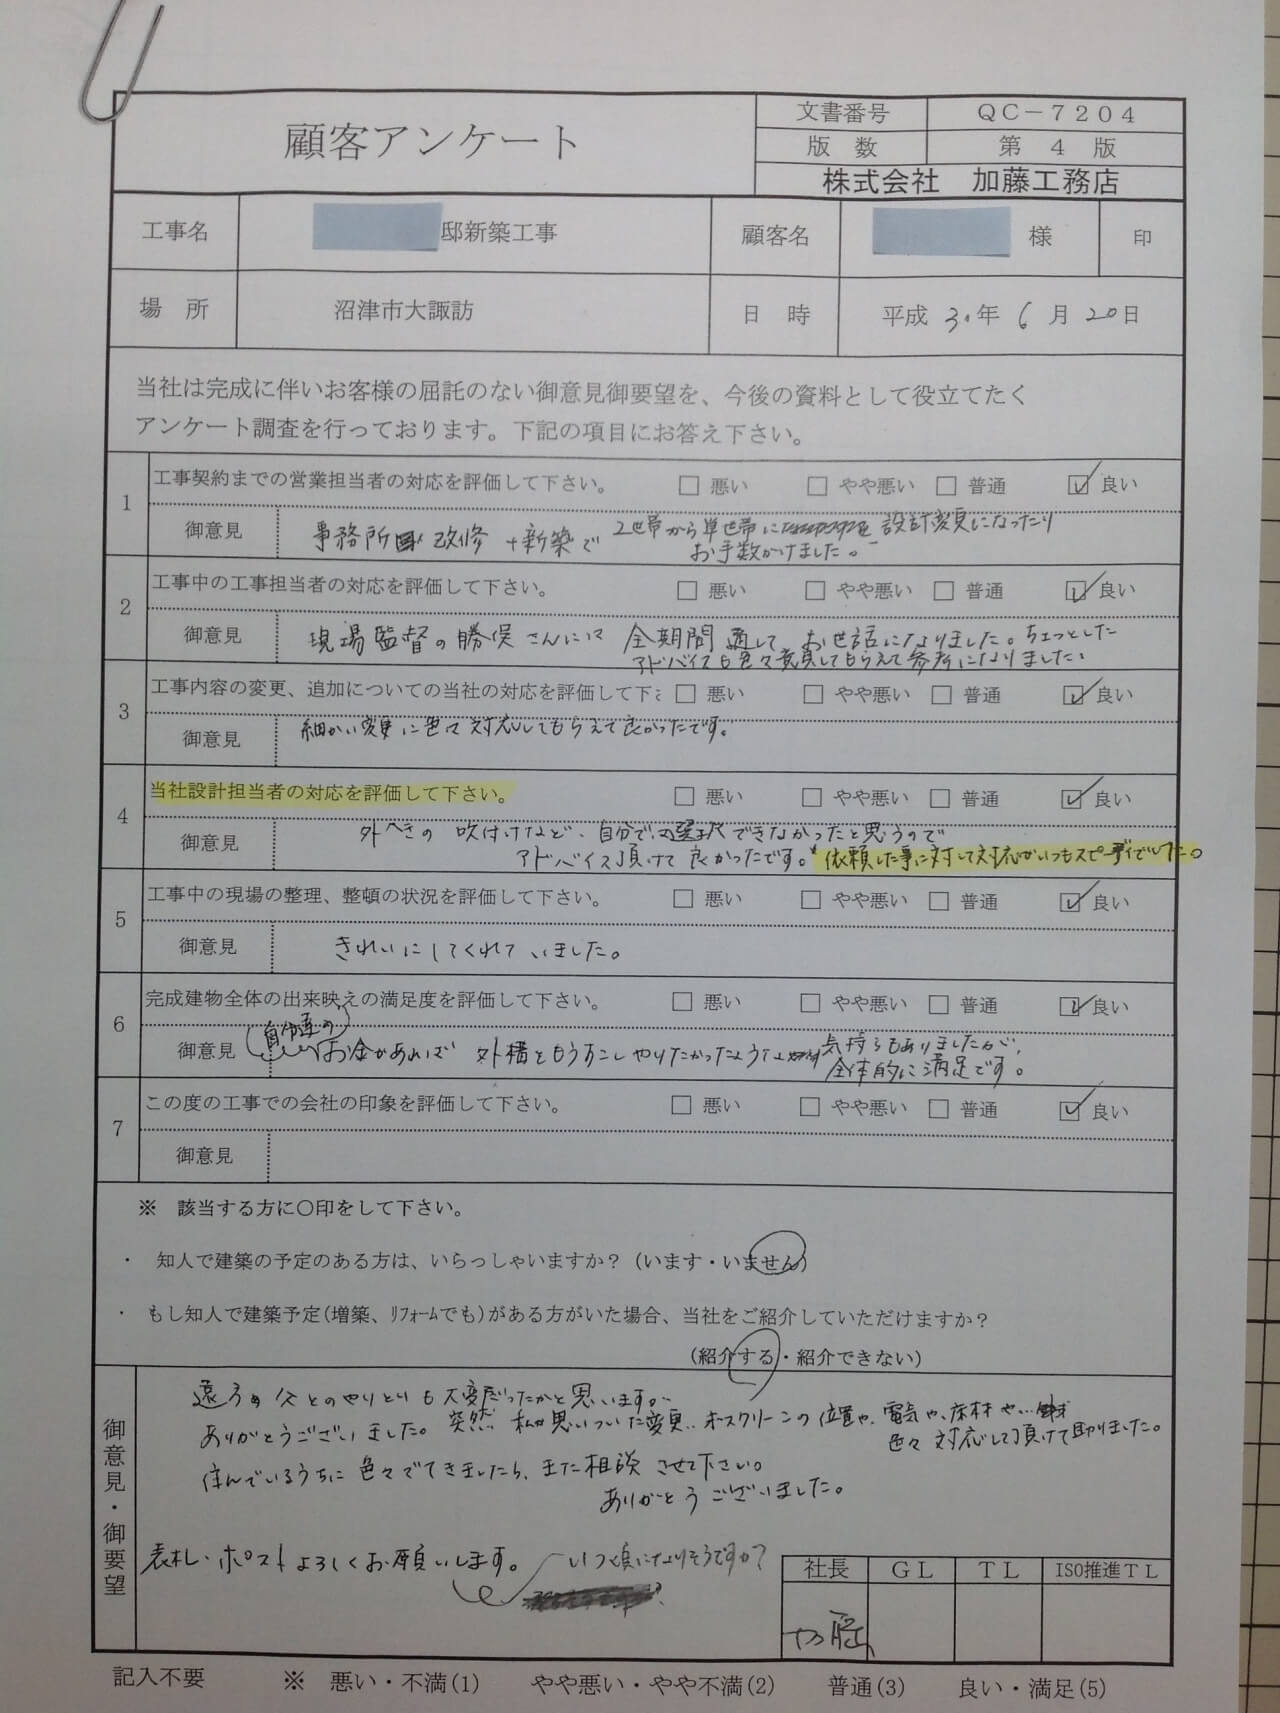 顧客アンケート
文書番号 QC－7204
版数 第4版
株式会社 加藤工務店
工事名 邸新築工事 顧客名 様 印
場所 沼津市大諏訪 日時 平成30年6月20日
当社は完成に伴いお客様の屈託のない御意見御要望を、今後の資料として役立てたく
アンケート調査を行っております。下記の項目にお答え下さい。
1 工事契約までの営業担当者の対応を評価して下さい。 □ 悪い □ やや悪い □ 普通 ☑ 良い
御意見 事務所 改修 +新築で 2世帯から単世帯に 設計変更になったり
お手数かけました。
2 工事中の工事担当者の対応を評価して下さい。 □ 悪い □ やや悪い □ 普通 ☑ 良い
御意見 現場監督の勝俣さんには 全期間通して お世話になりました。ちょっとした
アドバイスも色々意見してもらえて参考になりました。
3 工事内容の変更、追加についての当社の対応を評価して下 □ 悪い □ やや悪い □ 普通 ☑ 良い
御意見 細かい変更に色々対応してもらえて良かったです。
4 当社設計担当者の対応を評価して下さい。 □ 悪い □ やや悪い □ 普通 ☑ 良い
御意見 外へきの吹付けなど、自分で 選択できなかったと思うので
アドバイス頂けて良かったです。依頼した事に対して対応がいつもスピーディでした。
5 工事中の現場の整理、整頓の状況を評価して下さい。 □ 悪い □ やや悪い □ 普通 ☑ 良い
御意見 きれいにしてくれていました。
6 完成建物全体の出来映えの満足度を評価して下さい。 □ 悪い □ やや悪い □ 普通 ☑ 良い
自分達の
御意見 お金があれば 外構をもうすこしやりたかったような 気持ちもありましたが、
全体的に満足です。
7 この度の工事での会社の印象を評価して下さい。 □ 悪い □ やや悪い □ 普通 ☑ 良い
御意見
※ 該当する方に○印をして下さい。
・ 知人で建築の予定のある方は、いらっしゃいますか？（います・いません）
・ もし知人で建築予定(増築、ﾘﾌｫｰﾑでも)がある方がいた場合、当社をご紹介していただけますか？
（紹介する・紹介できない）
御意見・御要望
遠方の父とのやりとりも大変だったかと思います。
ありがとうございました。突然 私が思いついた変更、ホスクリーンの位置や、電気や、床材や…
色々対応して頂けて助りました。
住んでいるうちに色々でてきましたら、また相談させて下さい。
ありがとうございました。
表札・ポストよろしくお願いします。 いつ頃になりそうですか？
社長 GL TL ISO推進TL
加藤
記入不要 ※ 悪い・不満(1) やや悪い・やや不満(2) 普通(3) 良い・満足(5)